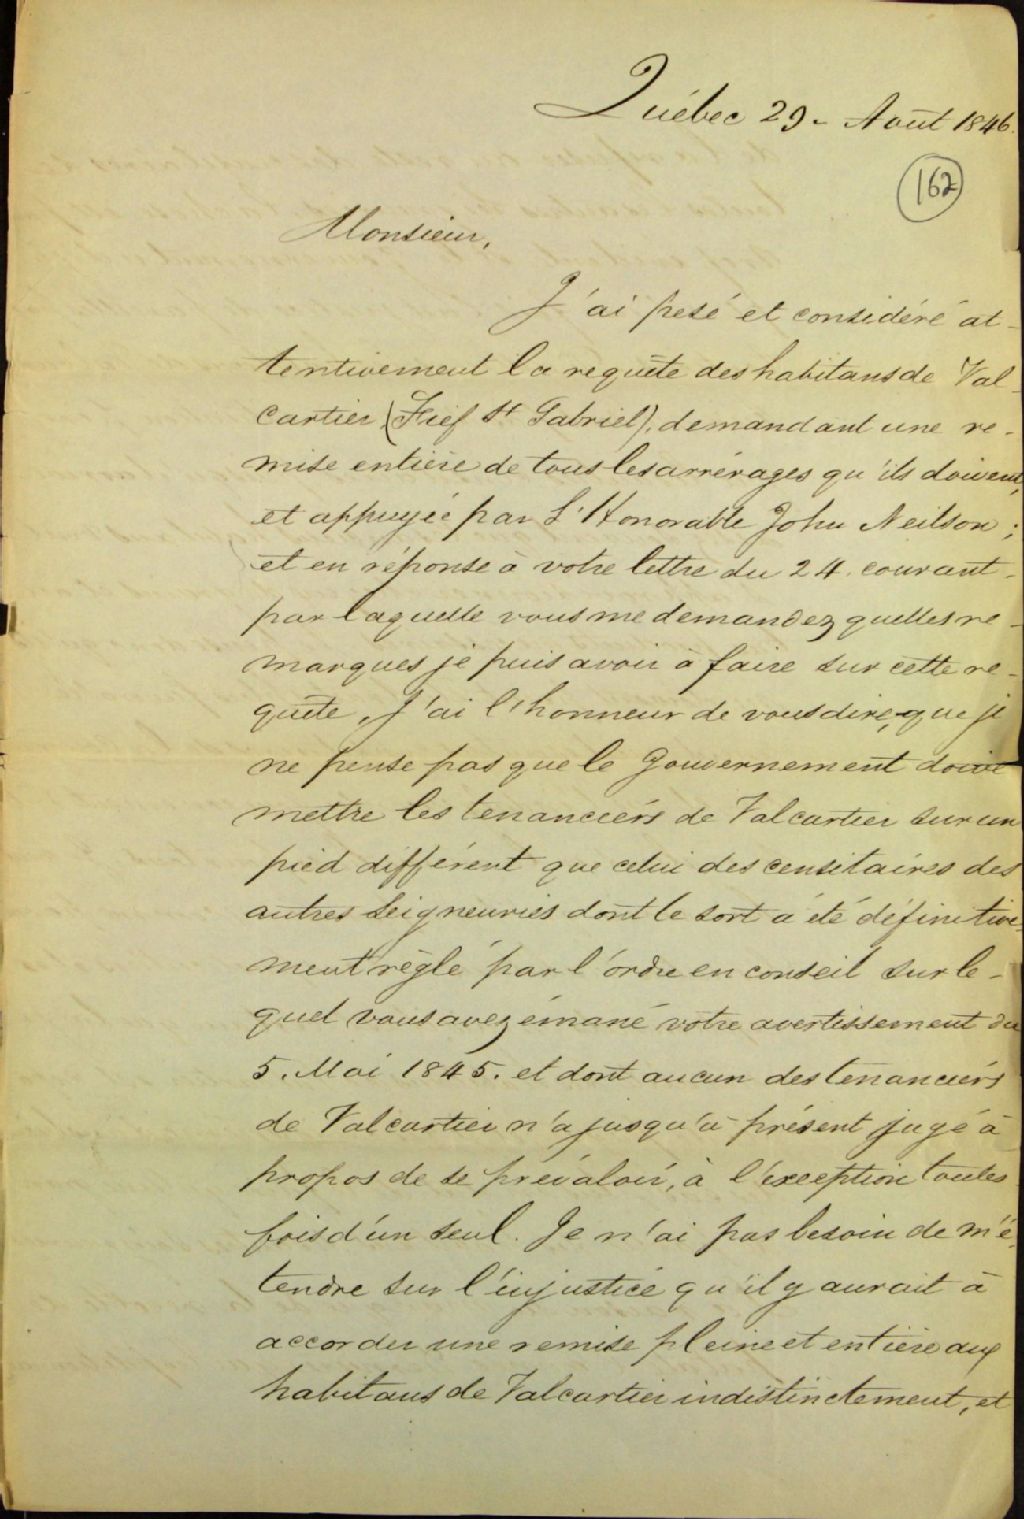 Québec 29 - Août 1846.
162
Monsieur,
J'ai pesé et considéré at-
tentivement la requête des habitans de Val-
cartier (Fief St Gabriel), demandant une re-
mise entière de tous les arrérages qu'ils doivent,
et appuyée par L'Honorable John Neilson ;
et en réponse à votre lettre du 24. courant -
par laquelle vous me demandez quelles re-
marques je puis avoir à faire sur cette re-
quête, J'ai l'honneur de vous dire, que je
ne pense pas que le Gouvernement doive
mettre les tenanciers de Valcartier sur un
pied différent que celui des censitaires des
autres Seigneuries dont le sort a été définitive-
ment règlé par l'ordre en conseil sur le-
quel vous avez émané votre avertissement du
5. Mai 1845. et dont aucun des tenanciers
de Valcartier n'a jusqu'à présent jugé à
propos de se prévaloir, à l'exception toutes
fois d'un seul. Je n'ai pas besoin de m'é-
tendre sur l'injustice qu'il y aurait à
accorder une remise pleine et entière aux
habitans de Valcartier indistinctement, et